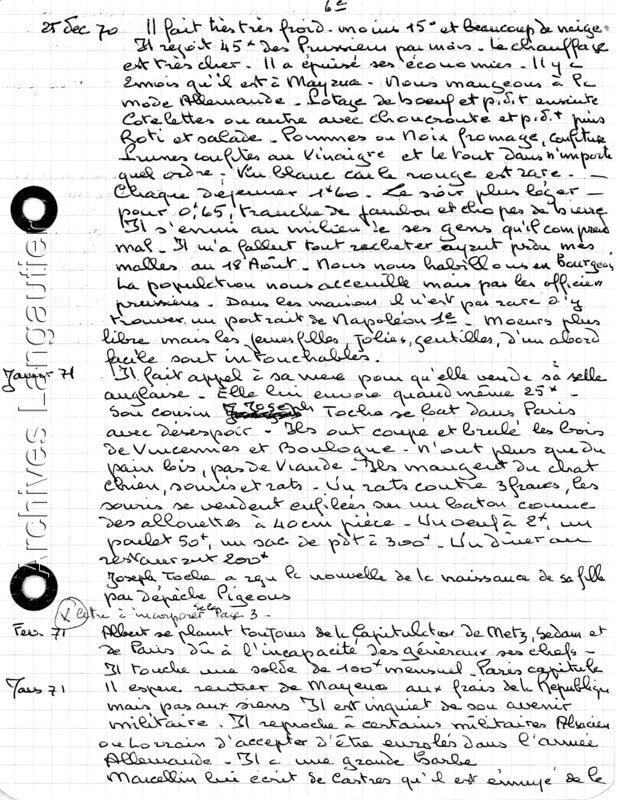 6e
25 Dec 70 Il fait très très froid - moins 15° et beaucoup de neige.
Il reçoit 45 des Prussiens par mois - Le chauffage
est très cher. Il a épuisé ses économies - Il y a
2 mois qu'il est à Mayence - Nous mangeons à la
mode Allemande - Potage de boeuf et p.d.t ensuite
Cotelettes ou autre avec choucroute et p.d.t puis
Roti et salade - Pommes ou Noix fromage, confiture
Prunes confites au Vinaigre et le tout dans n'importe
quel ordre - Vin blanc car le rouge est rare. -
Chaque déjeuner 1,60 - Le soir plus léger -
pour 0,65, tranche de jambon et chopes de bierre
Il s'ennui au milieu de ses gens qu'il comprend
mal - Il m'a fallut tout racheter ayant perdu mes
malles au 18 Août. - Nous nous habillons en Bourgeois
La population nous acceuille mais pas les officiers
prussiens - Dans les maisons il n'est pas rare d'y
trouver un portrait de Napoléon 1e - Moeurs plus
libre mais les jeunes filles, jolies, gentilles, d'un abord
facile sont intouchables.
Janvier 71 Il fait appel à sa mere pour qu'elle vende sa selle
anglaise - Elle lui envoie quand même 25 -
Son cousin Joseph Toche se bat dans Paris
avec désespoir - Ils ont coupé et brulé les bois
de Vincennes et Boulogne - n'ont plus que du
pain bis, pas de Viande - Ils mangent du chat
chien, souris et rats - Un rats contre 3 francs, les
souris se vendent enfilées sur un baton comme
des allouettes à 40cm pièce - Un oeuf à 2, un
poulet 50, un sac de pdt à 300 - Un dîner au
restaurant 200
Joseph Toche a reçu la nouvelle de la naissance de sa fille
par dépêche Pigeons
X lettre à incorporer page 3 -
Fev. 71 Albert se plaint toujours de la Capitulation de Metz, Sedan et
de Paris dû à l'incapacité des généraux ses chefs -
Il touche une solde de 100 mensuel - Paris capitule
Mars 71 Il espere rentrer de Mayence aux frais de la République
mais pas aux siens Il est inquiet de son avenir
militaire - Il reproche à certains militaires Alsacien
ou Lorrain d'accepter d'être enrolés dans l'armée
Allemande - Il a une grande barbe
Marcellin lui écrit de Castres qu'il est ennuyé de le
Archives Langautier